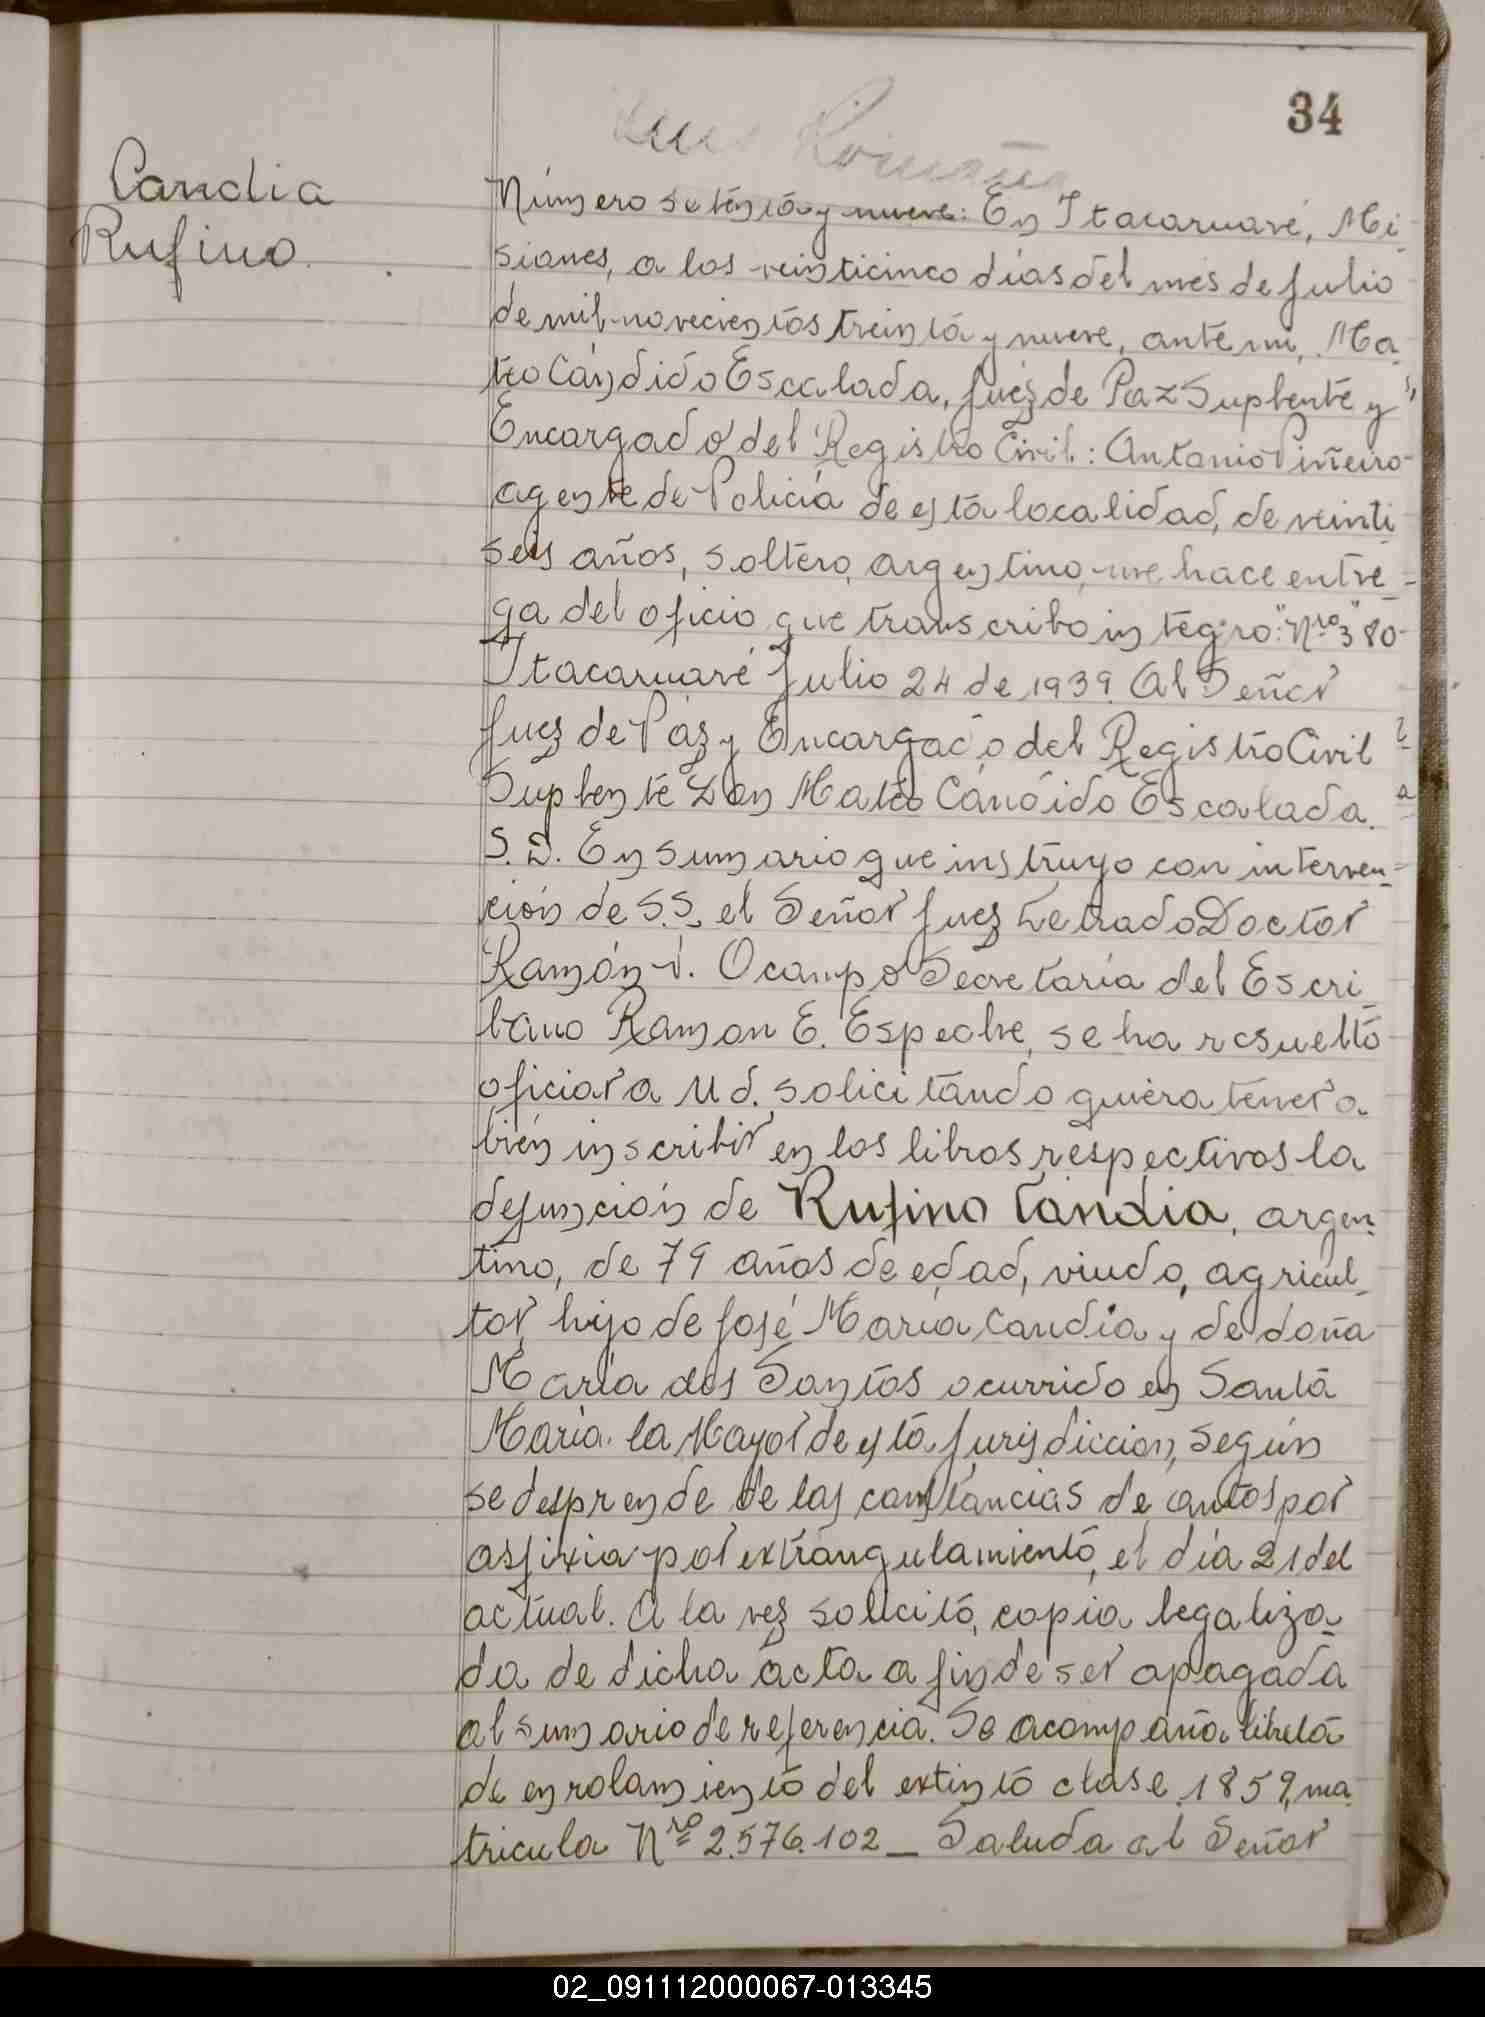 34
Candia
Rufino.
Número setenta y nueve: En Itacaruaré, Mi-
siones, a los veinticinco días del mes de Julio
de mil novecientos treinta y nueve, ante mi, Ma-
teo Cándido Escalada, Juez de Paz Suplente y
Encargado del Registro Civil: Antonio Piñeiro
agente de Policía de esta localidad, de veinti
seis años, soltero, argentino, me hace entre-
ga del oficio que transcribo integro: "Nro" 380-
Itacaruaré Julio 24 de 1939. Al Señor
Juez de Páz y Encargado del Registro Civil
Suplente Don Mateo Cándido Escalada.
S. D. En sumario que instruyo con interven-
ción de S.S. el Señor Juez Letrado Doctor
Ramón V. Ocampo Secretaría del Escri-
bano Ramon E. Espeche, se ha resuelto
oficiar a Ud. solicitando quiera tener a
bién inscribir en los libros respectivos la
defunción de Rufino Candia, argen-
tino, de 79 años de edad, viudo, agricul-
tor, hijo de José María Candia y de doña
María dos Santos ocurrido en Santa
María la Mayor de esta Jurisdiccion, según
se desprende de las constancias de autos por
asfixia por extrangulamiento, el día 21 del
actual. A la vez solicito, copia legaliza-
da de dicha acta a fin de ser apagada
al sumario de referencia. Se acompaña libreta
de enrolamiento del extinto clase 1859, ma-
tricula Nro 2.576.102 _ Saluda al Señor
02_091112000067-013345